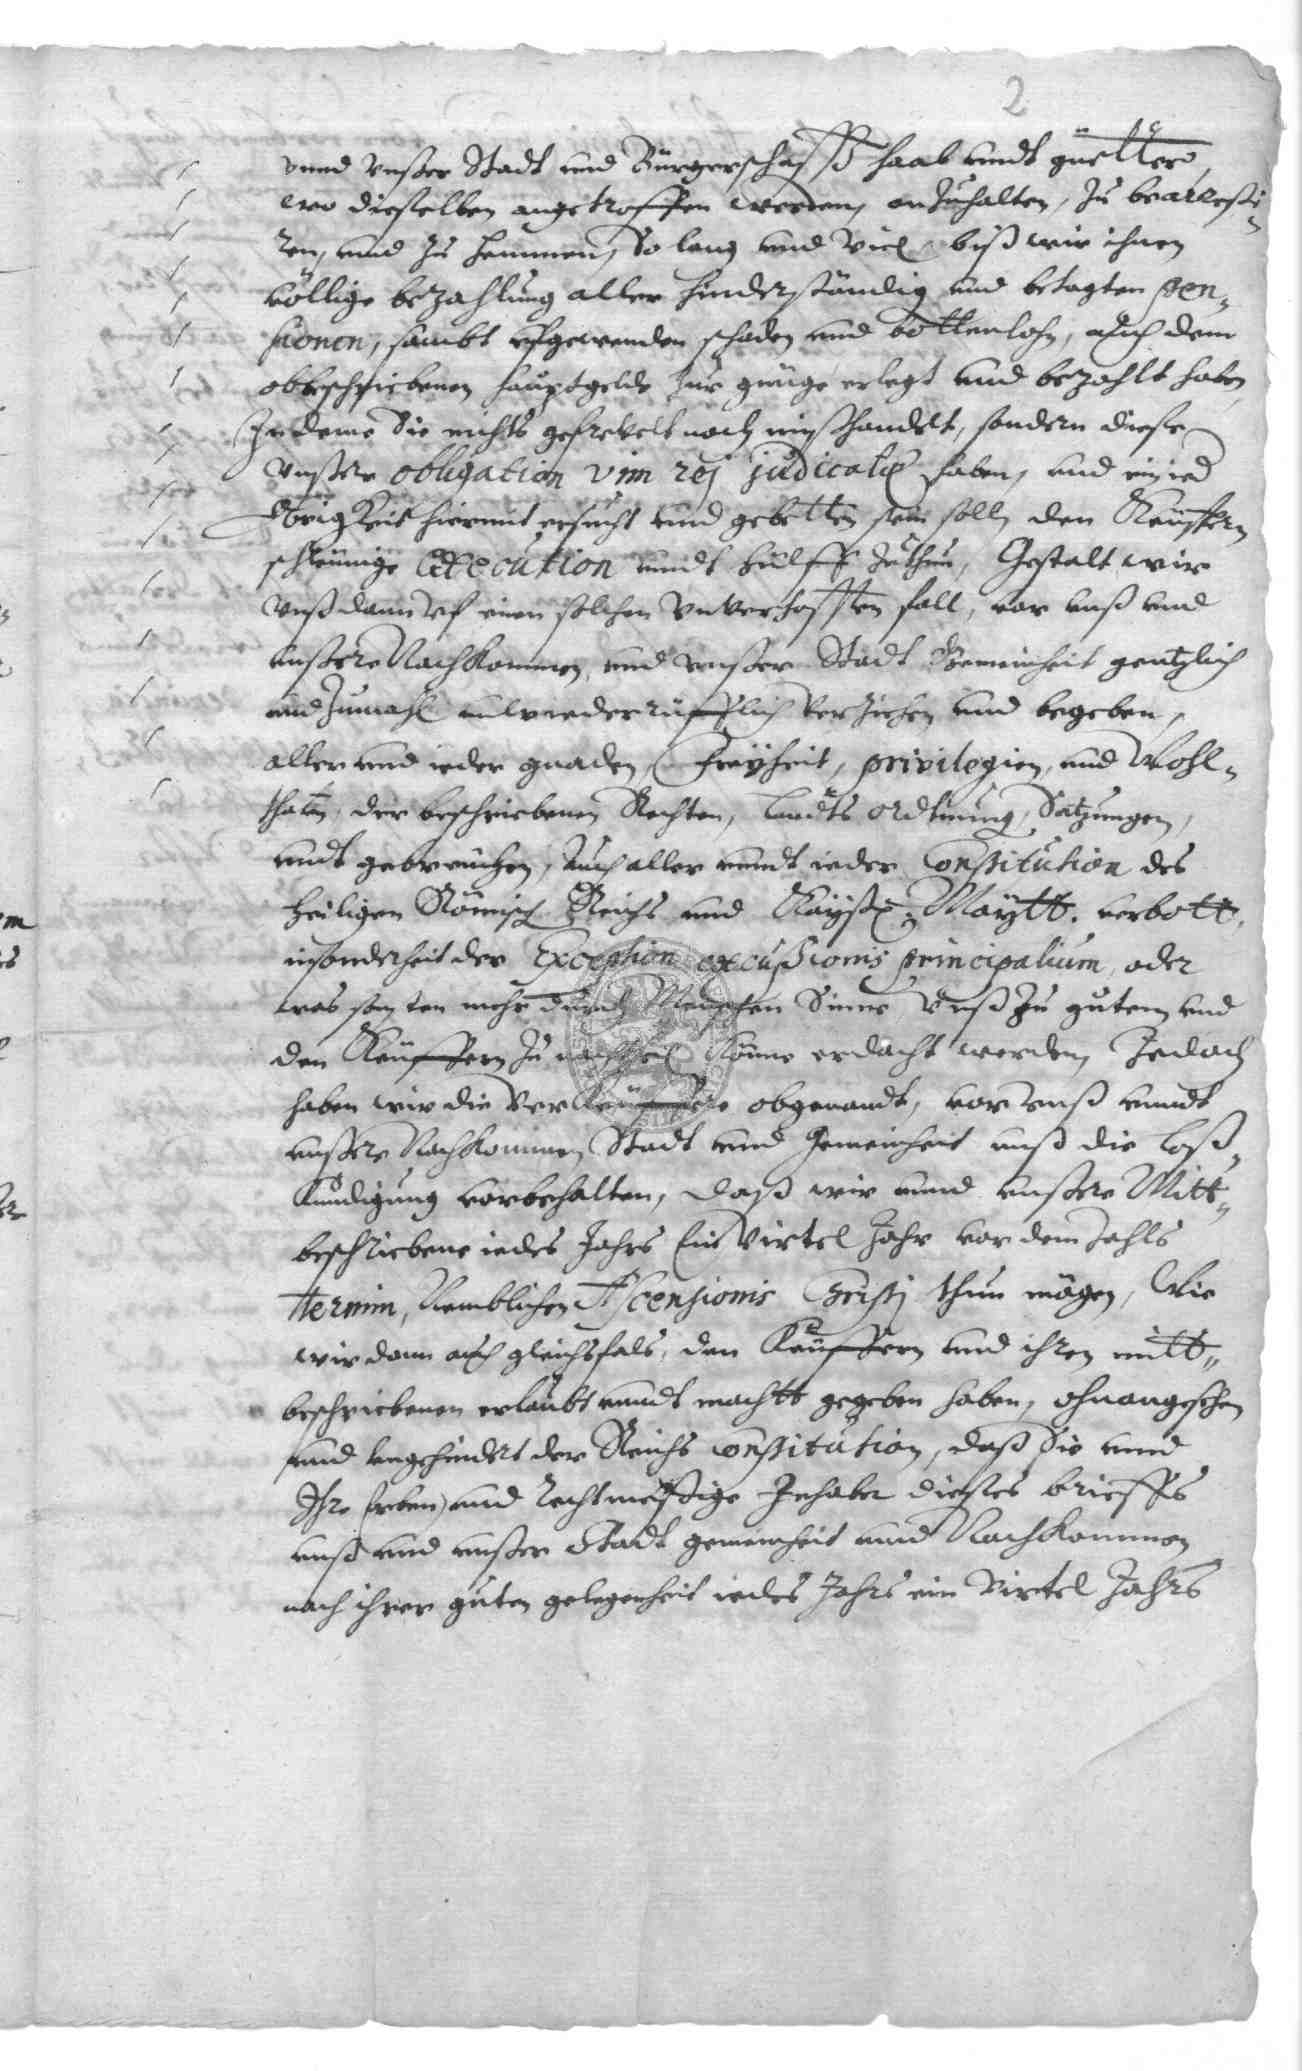 2
vnnd vnßer Stadt und Bürgerschafft haab vndt guetter,
wo dieselben angetroffen werden, anzuhalten, zu bearresti-
ren, und zu hemmen, So lang und viel biß wir ihnen
völlige bezahlung aller hinderständig und betagten pen-
sionen, sambt ufgewenden schaden und bottenlohn, auch dem
obbeschriebenen hauptgeldt zur gnüge erlegt und bezahlt haben,
Indeme Sie nichts gefrevelt noch mißhandelt, sondern diese
vnßer obligation vim rej judicatæ haben, und ein ied
Obrigkeit hiermit ersucht und gebetten sein soll, den Keuffern
schleünige Execution vndt hülff zuthun, Gestalt wir
vnß dann vf einen solchen vnverhofften fall, vor vnß und
vnßere Nachkommen, und vnßer Stadt Gemeinheit gentzlich
und zumahl unwiederrüfflich verziehen und begeben,
aller und ieder gnaden, Freyheit, privilegien, und Wohl-
thaten, der beschriebenen Rechten, landts ordnung, Satzungen,
vndt gebreuchen, Auch aller vnndt ieder Constitution des
heiligen Römisch Reichs und Kayß: Maytt. verbott,
insonderheit der Exception excußionis principalium, oder
was sonsten mehr durch Menschen Sinne, vnß zu gutem und
den Keuffern zu nachtheil könne erdacht werden, Jedoch
haben wir die Verkeuffere obgenandt, vor vnß vnndt
vnßere Nachkommen, Stadt und Gemeinheit vnß die loß-
kündigung vorbehalten, daß wir vnnd vnßere Mitt-
beschriebene iedes Jahrs Ein Virtel Jahr vor dem Zahls
termin, Nemblichen Ascensionis Christj thun mögen, Wie
wir dann auch gleichsfals, den Keuffern und ihren mitt-
beschriebenen erlaubt vnndt machtt gegeben haben, ohnangesehen
und vngehindert der Reichs Constitution, daß Sie vnnd
Ihre Erben, und rechtmeßige Inhaber dießes brieffs
vnß und vnßer Stadt gemeinheit vnnd Nachkommen
nach ihrer guten gelegenheit iedes Jahrs ein Virtel Jahrs